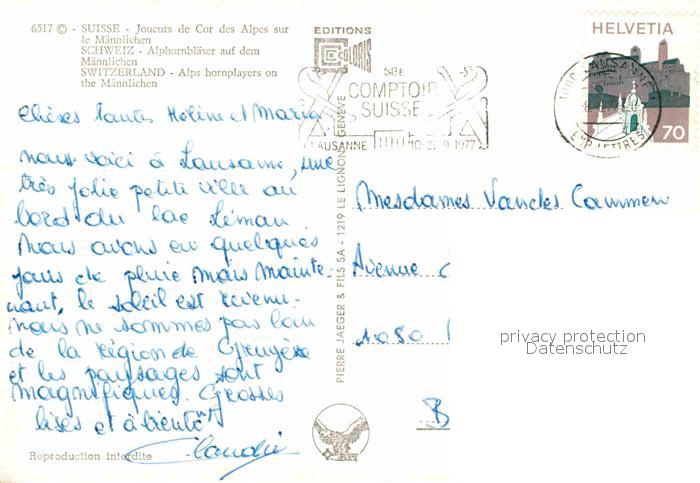 6517 © - SUISSE - Joueurs de Cor des Alpes sur
le Männlichen
SCHWEIZ - Alphornbläser auf dem
Männlichen
SWITZERLAND - Alps hornplayers on
the Männlichen
EDITIONS
COLORIS
58E
COMPTOIR
SUISSE
LAUSANNE 10-25.9.1977
HELVETIA
70
1000 LAUSANNE
EXP LETTRES
Chères tantes Hélène et Maria
nous voici à Lausanne, une
très jolie petite ville au
bord du lac Léman
Nous avons eu quelques
jours de pluie mais mainte-
nant, le soleil est revenu.
nous ne sommes pas loin
de la région de Gruyère
et les paysages sont
magnifiques. Grosses
bises et à bientôt
Claudie
Mesdames Vandes Cammen
Avenue
1080
B
PIERRE JAEGER & FILS SA - 1219 LE LIGNON - GENÈVE
privacy protection
Datenschutz
Reproduction interdite